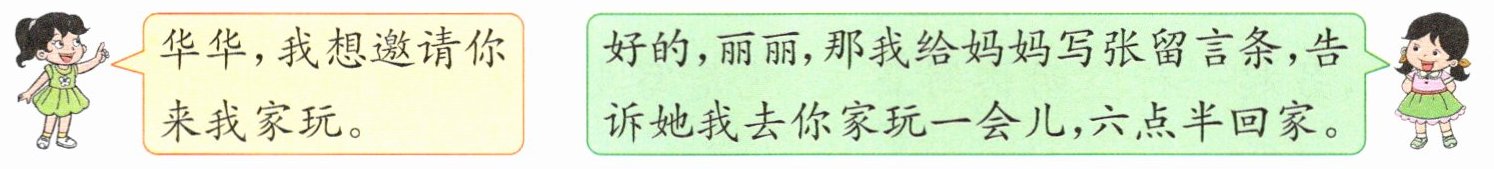 华华，我想邀请你
来我家玩。
好的，丽丽，那我给妈妈写张留言条，告
诉她我去你家玩一会儿，六点半回家。